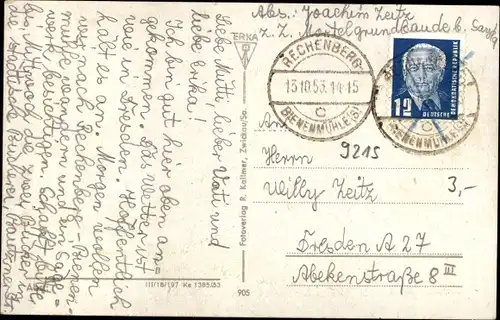 Abs. Joachim Zeitz
z. Z. Mortelgrundbaude b. Sayda
Liebe Mutti, lieber Vati und
liebe Erika!
Ich bin gut hier oben an-
gekommen. Das Wetter ist
wie in Dresden. Hoffentlich
hält es an. Morgen wollen
wir nach Rechenberg-Bienen-
mühle wandern und ein Säge-
werk besichtigen.
bis Mittwoch
ERKA
Fotoverlag R. Kallmer, Zwickau/Sa.
III/18/197 Ke 1385/53
905
RECHENBERG-
13.10.53.14-15
c
BIENENMÜHLE (S)
12
DEUTSCHE
DEMOKRATISCHE REPUBLIK
c
BIENENMÜHLE (S)
An
Herrn
9215
Willy Zeitz
3,-
Dresden A 27
Abekenstraße 8 III